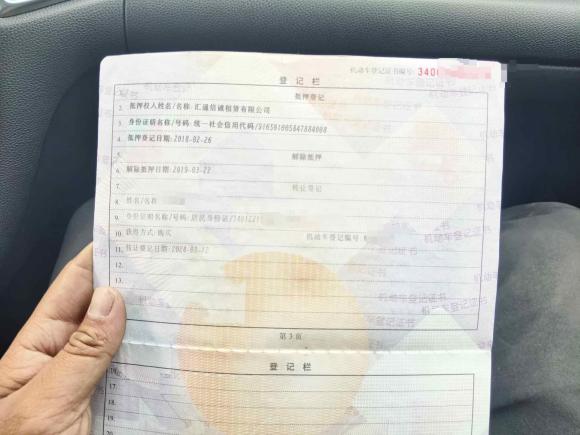 机动车登记证书编号: 340
登记栏
1. 抵押登记
2. 抵押权人姓名/名称: 汇通信诚租赁有限公司
3. 身份证明名称/号码: 统一社会信用代码/916501005847884008
4. 抵押登记日期: 2018-02-26
5. 解除抵押
6. 解除抵押日期: 2019-03-22
7. 转让登记
8 姓名/名称:
9 身份证明名称/号码: 居民身份证/
10 获得方式: 购买 机动车登记编号:
11 转让登记日期:
12.
13.
第3页
登记栏
16.
17.
18.
19.
20
机动车登记证书